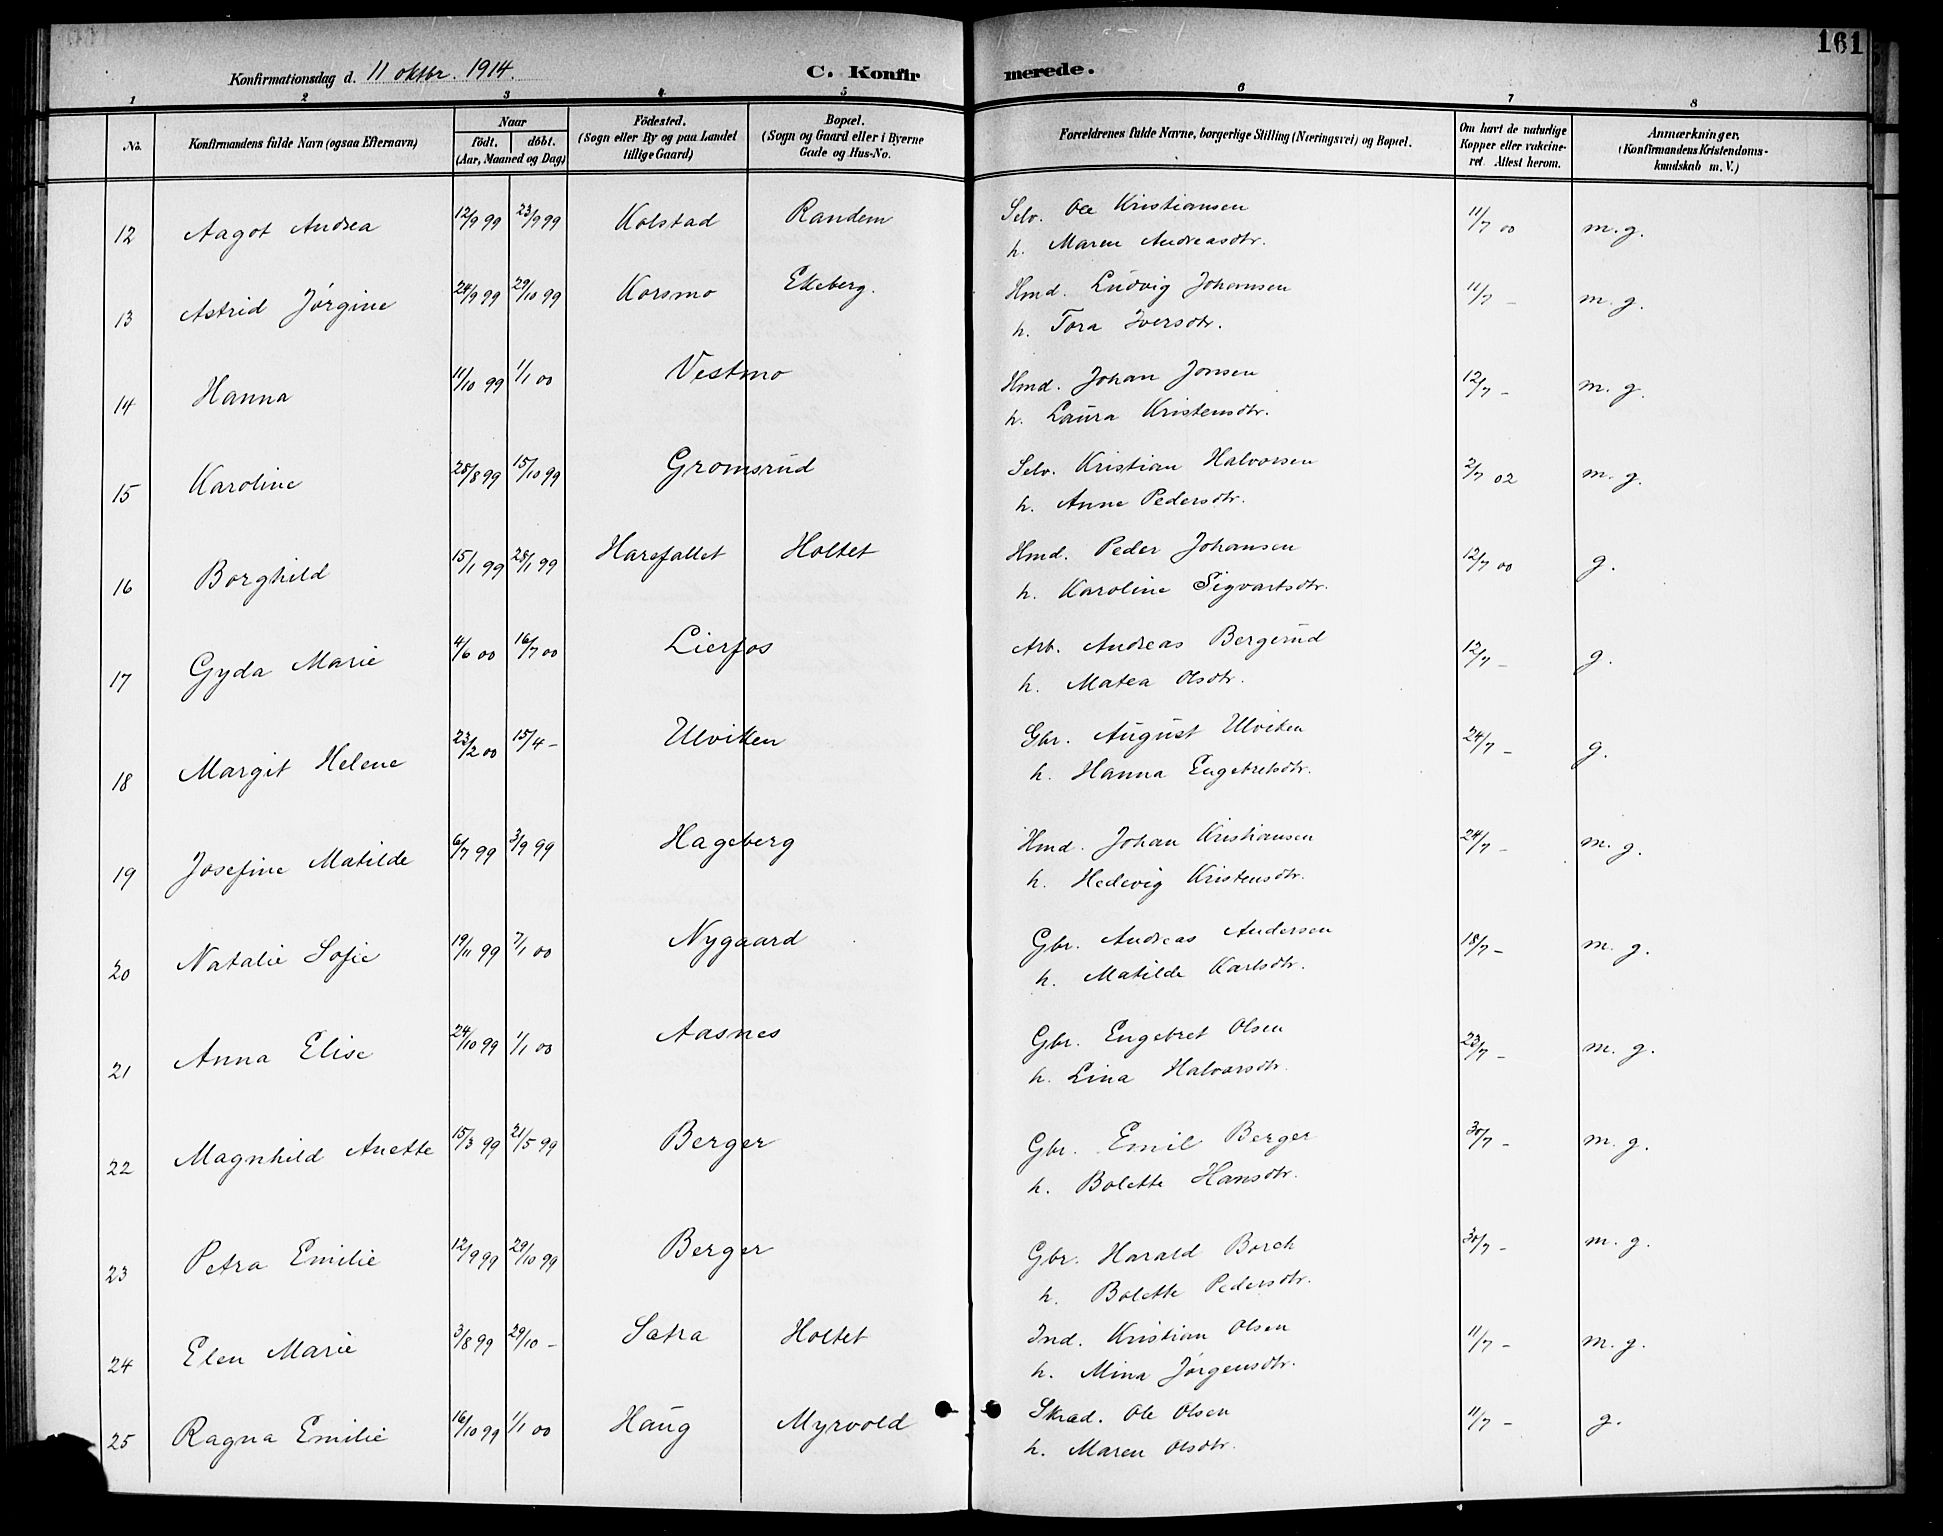 161
Konfirmationsdag d. 11 oktbr. 1914. C. Konfirmerede.
1 2 3 4 5 6 7 8
No. Konfirmandens fulde Navn (ogsaa Efternavn) Naar født. døbt. (Aar, Maaned og Dag) Fødested. (Sogn eller By og paa Landet tillige Gaard) Bopæl. (Sogn og Gaard eller i Byerne Gade og Hus-No. Forældrenes fulde Navne, borgerlige Stilling (Næringsvei) og Bopæl. Om havt de naturlige Kopper eller vakcineret. Attest herom. Anmærkninger. (Konfirmandens Kristendomskundskab m. V.)
12 Aagot Andrea 12/9 99 23/9 99 Kolstad Randem Selv. Ole Kristiansen 11/7 00 m. g.
h. Maren Andreasdtr.
13 Astrid Jørgine 24/9 99 29/10 99 Korsmo Ekeberg. Hmd. Ludvig Johansen 11/7 - m. g.
h. Tora Iversdtr.
14 Hanna 11/10 99 1/1 00 Vestmo Hmd. Johan Jonsen 12/7 - m. g.
h. Laura Kristensdtr.
15 Karoline 28/8 99 15/10 99 Gromsrud Selv. Kristian Halvorsen 2/7 02 m. g.
h. Anne Pedersdtr.
16 Borghild 15/1 99 28/1 99 Harefallet Holtet Hmd. Peder Johansen 12/7 00 g.
h. Karoline Sigvartsdtr.
17 Gyda Marie 4/6 00 16/7 00 Lierfos Arb. Andreas Bergerud 12/7 - g.
h. Matea Olsdtr.
18 Margit Helene 23/2 00 15/4 - Ulviken Gbr. August Ulviken 24/7 - g.
h. Hanna Engebretsdtr.
19 Josefine Matilde 6/7 99 3/9 99 Hageberg Hmd. Johan Kristiansen 24/7 - m. g.
h. Hedevig Kristensdtr.
20 Natalie Sofie 19/11 99 7/1 00 Nygaard Gbr. Andreas Andersen 18/7 - m. g.
h. Matilde Karlsdtr.
21 Anna Elise 24/10 99 1/1 00 Aasnes Gbr. Engebret Olsen 23/7 - m. g.
h. Lina Halvorsdtr.
22 Magnhild Anette 15/3 99 21/5 99 Berger Gbr. Emil Berger 30/7 - m. g.
h. Bolette Hansdtr.
23 Petra Emilie 12/9 99 29/10 99 Berger Gbr. Harald Borch 30/7 - m. g.
h. Bolette Pedersdtr.
24 Elen Marie 3/8 99 29/10 - Satra Holtet Ind. Kristian Olsen 11/7 - m. g.
h. Mina Jørgensdtr.
25 Ragna Emilie 16/10 99 1/1 00 Haug Myrvold Skrad. Ole Olsen 11/7 - g.
h. Maren Olsdtr.